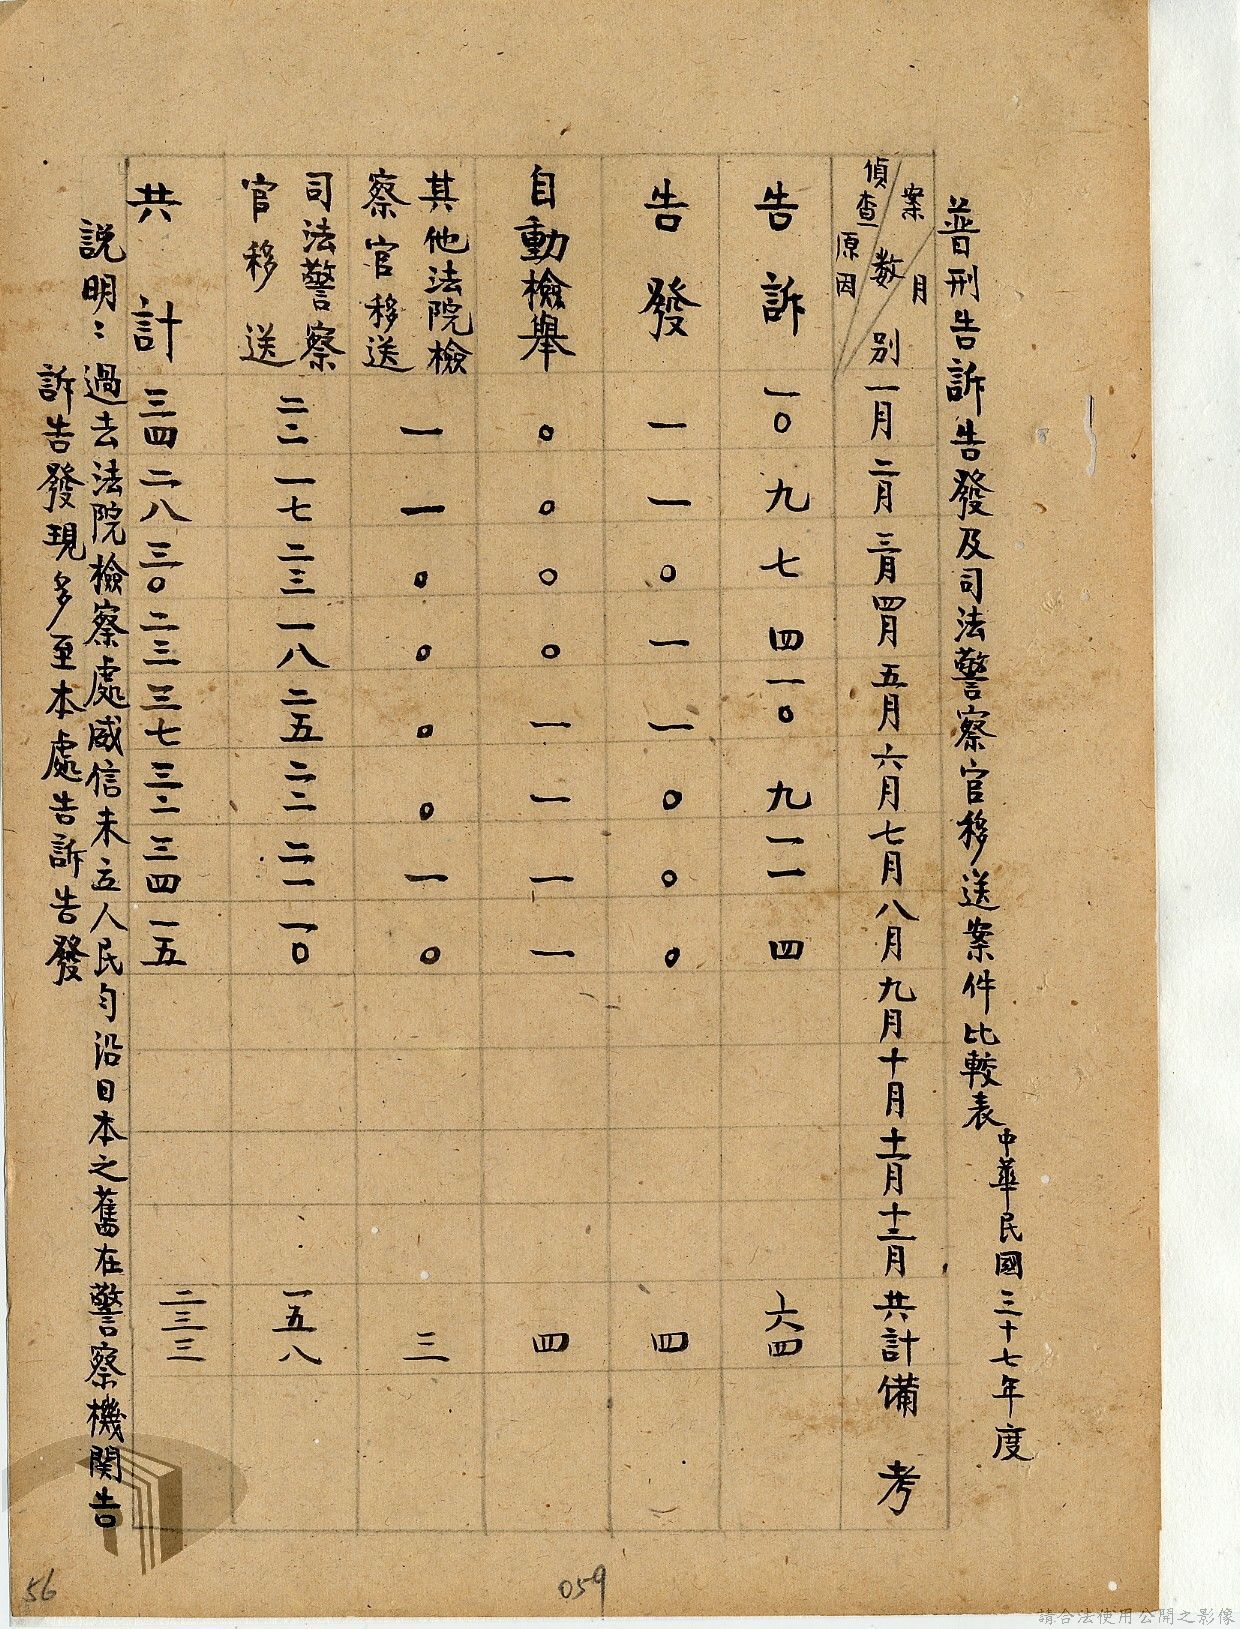 普刑告訴告發及司法警察官移送案件比較表 中華民國三十七年度
案數 月別 偵查原因 一月 二月 三月 四月 五月 六月 七月 八月 九月 十月 十一月 十二月 共計 備考
告訴 一〇 九 七 四 一〇 九 一一 四 六四
告發 一 一 〇 一 一 〇 〇 〇 四
自動檢舉 〇 〇 〇 〇 一 一 一 一 四
其他法院檢
察官移送 一 一 〇 〇 〇 〇 一 〇 三
司法警察
官移送 二二 一七 二三 一八 二五 二二 二一 一〇 一五八
共計 三四 二八 三〇 二三 三七 三二 三四 一五 二三三
說明：過去法院檢察處威信未立人民勻沿日本之舊在警察機關告
訴告發現多至本處告訴告發
56
059
請合法使用公開之影像